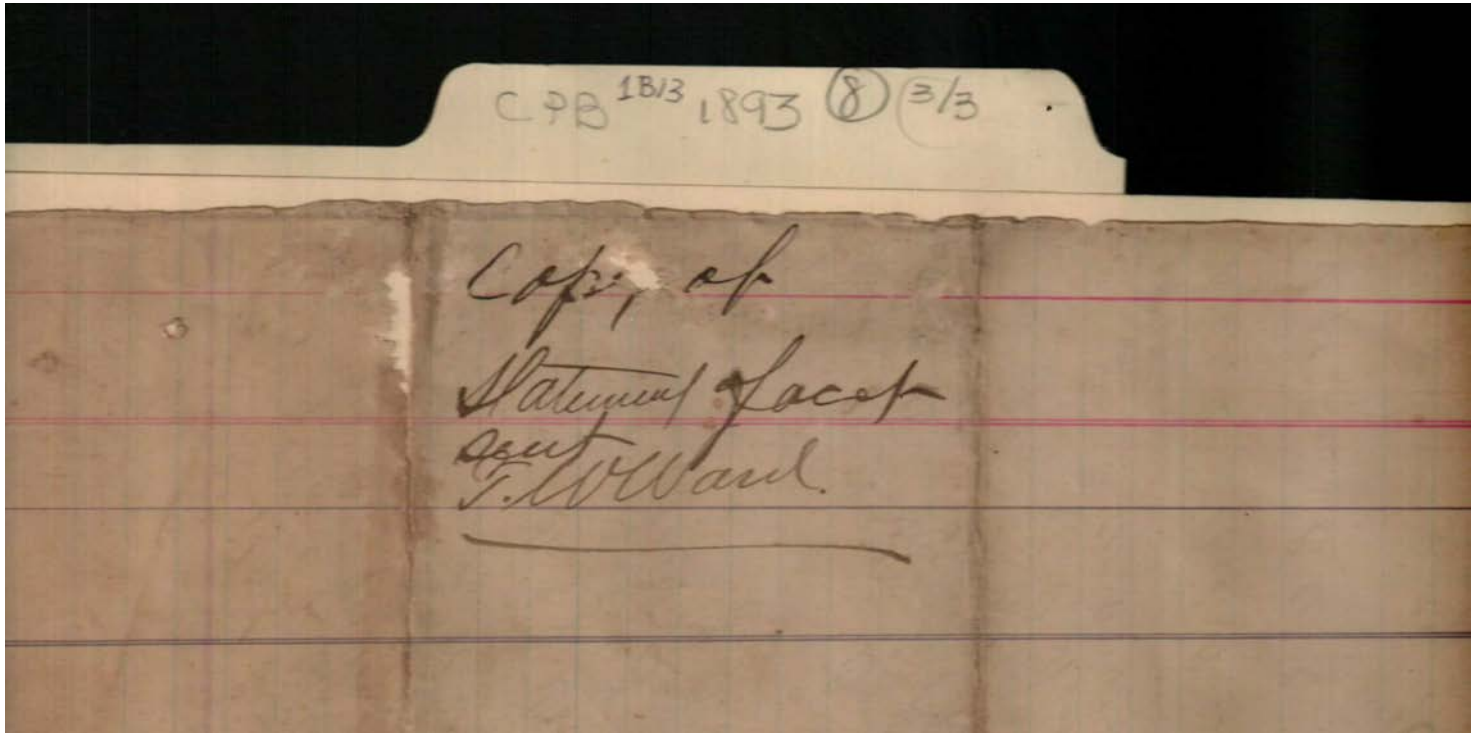 CPB 1B/3 1893 (8) (3/3
Copy of
Statement facts
sent
T. W. Ward.